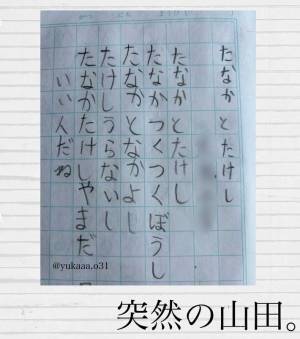 たなか と たけし
たなか と たけし
たなか つくつくぼうし
たなか と なかよし
たけし うらないし
たなか たけし やまだ
いい人だね
@yukaaa.o31
突然の山田。